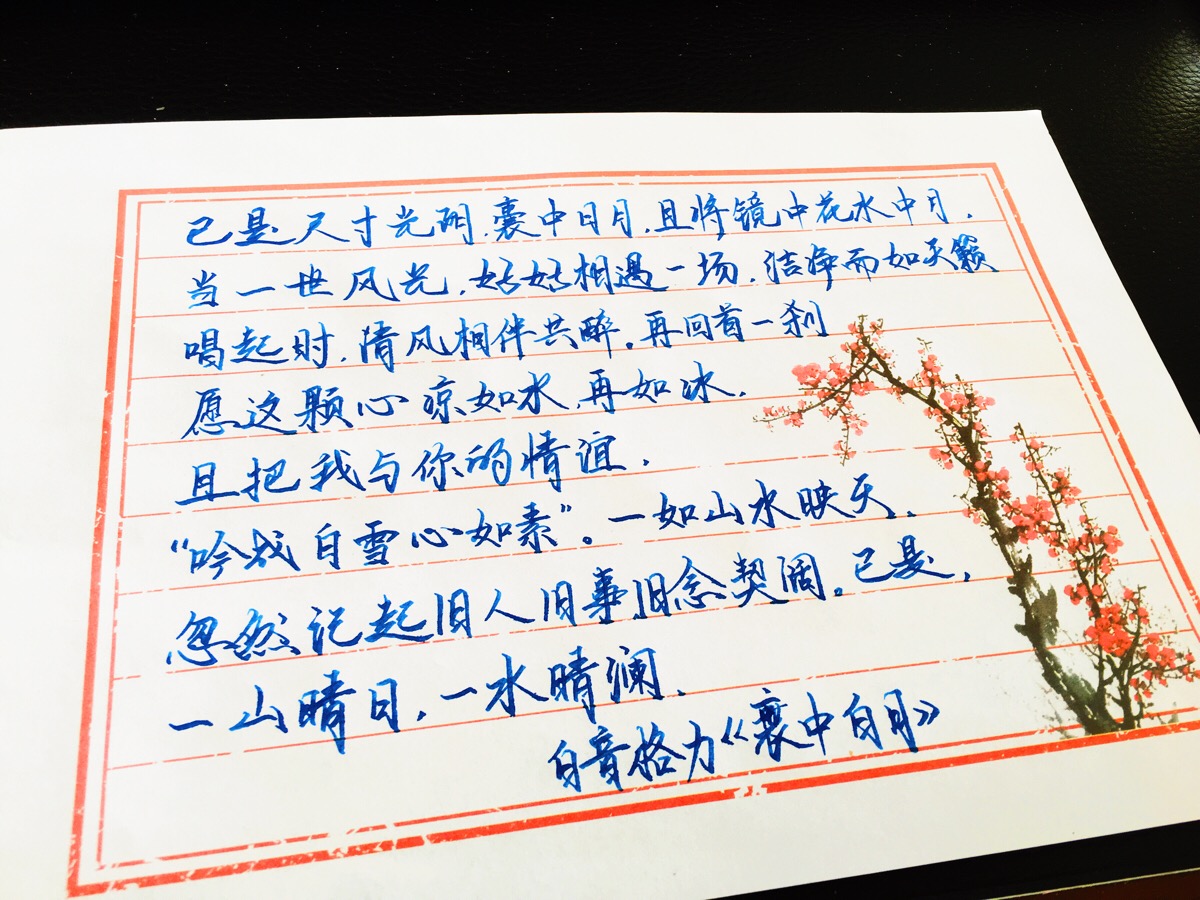 已是尺寸光阴,囊中日月,且将镜中花水中月,
当一世风光,好好相遇一场,洁净而如天籁
唱起时,清风相伴共醉。再回首一刹
愿这颗心凉如水,再如冰,
且把我与你的情谊,
“吟成白雪心如素”。一如山水映天,
忽然记起旧人旧事旧念契阔。已是,
一山晴日,一水晴澜,
白音格力《囊中日月》